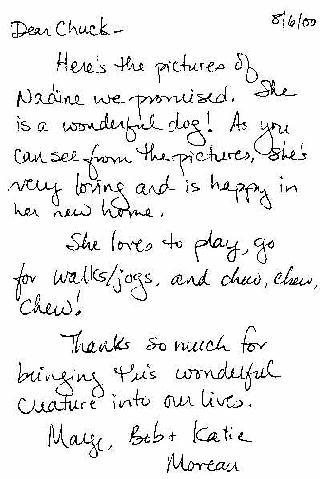 8/6/00
Dear Chuck -
Here's the pictures of
Nadine we promised. She
is a wonderful dog! As you
can see from the pictures, she's
very loving and is happy in
her new home.
She loves to play, go
for walks/jogs, and chew, chew,
chew!
Thanks so much for
bringing this wonderful
creature into our lives.
Marge, Bob + Katie
Moreau